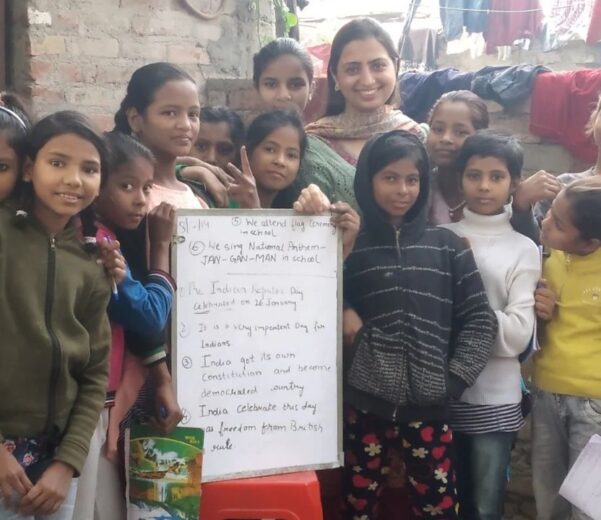 ⑤ We attend flag Ceremony
in school
⑥ We sing National Anthem-
JAN-GAN-MAN in school
① The Indian Republic Day
celebrated on 26 January
2 It is a very important Day for
Indians.
③ India got its own
Constitution and become
country
④ India celebrate this day
as freedom from British
rule.